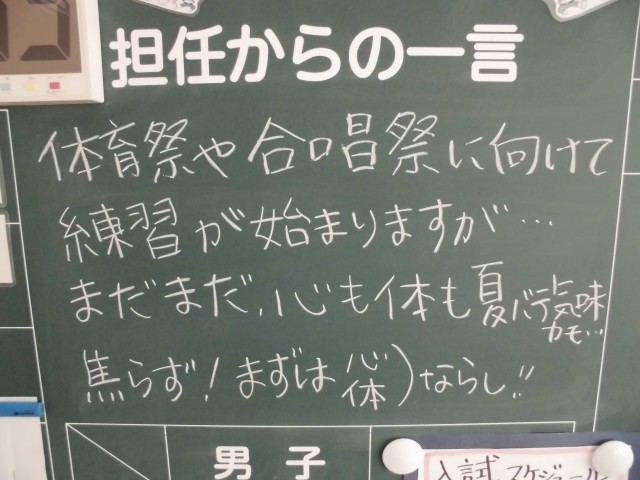 担任からの一言
体育祭や合唱祭に向けて
練習が始まりますが…
まだまだ、心も体も夏バテ気味
カモ…
焦らず！まずは心体)ならし!!
男子
入試スケジュール